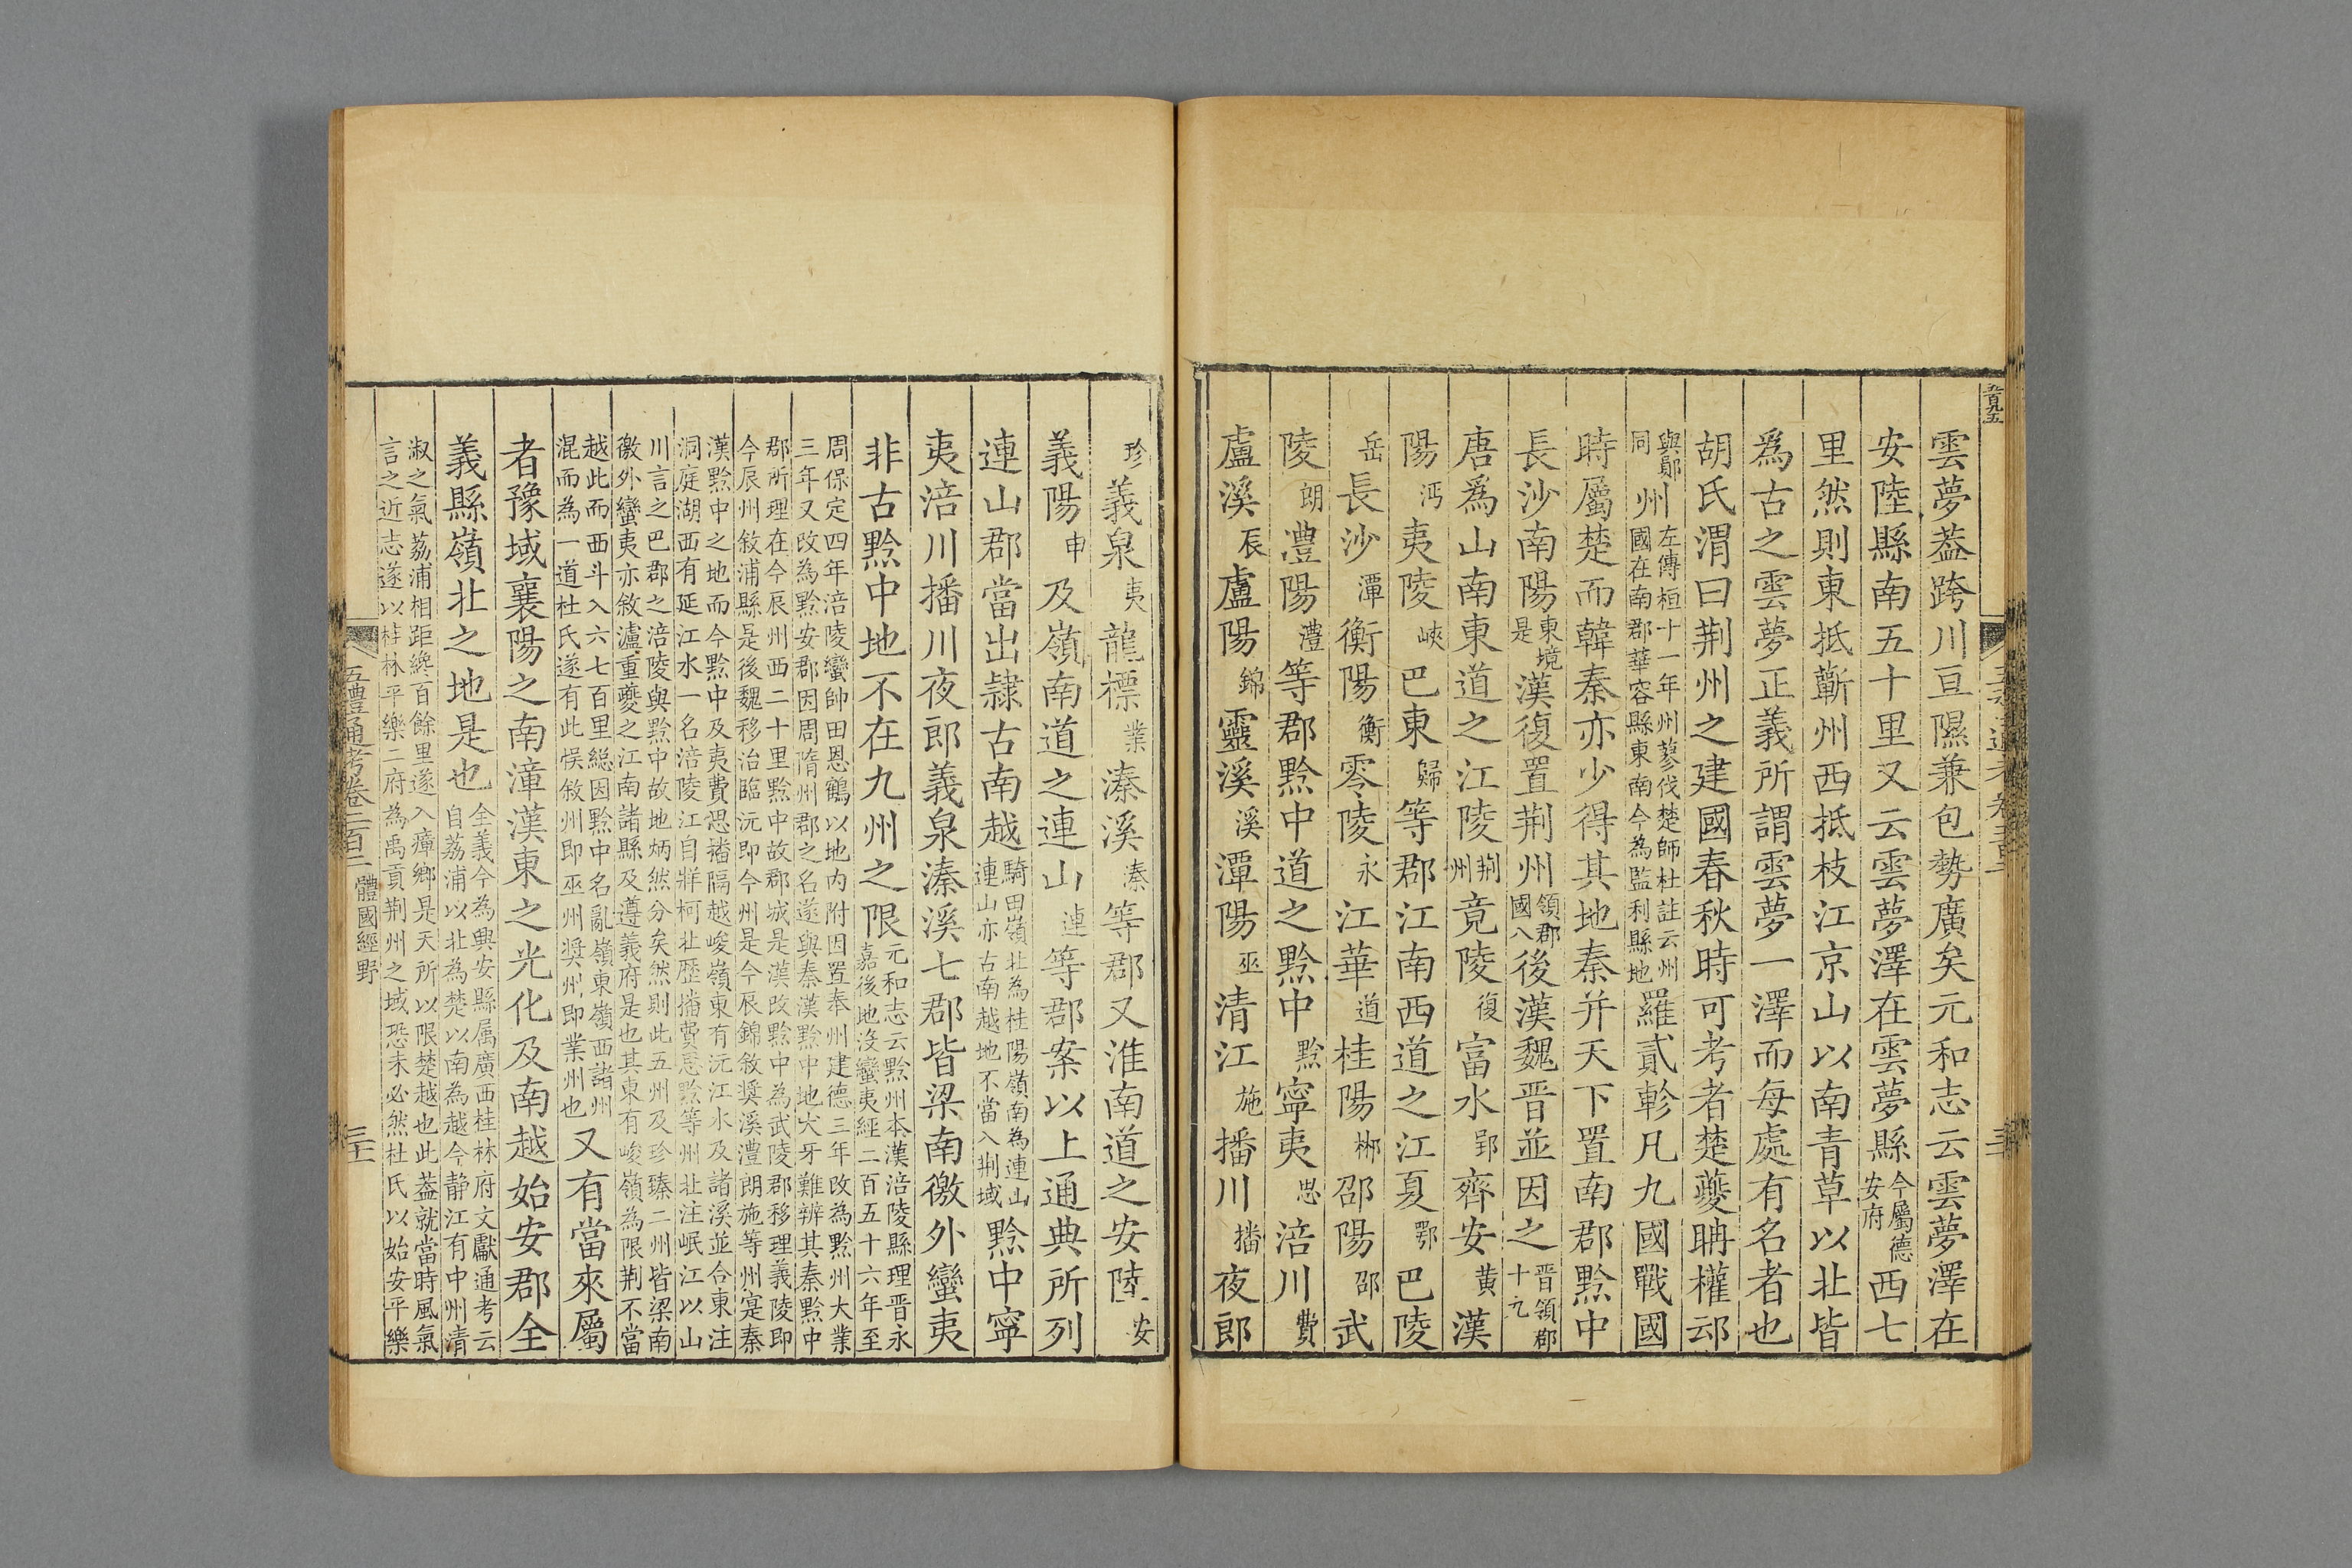 雲夢葢跨川亘隰兼包勢廣矣元和志云雲夢澤在
安陸縣南五十里又云雲夢澤在雲夢縣今屬德安府西七
里然則東抵蘄州西抵枝江京山以南青草以北皆
爲古之雲夢正義所謂雲夢一澤而每處有名者也
胡氏渭曰荆州之建國春秋時可考者楚夔聃權䢵
與鄖同州左傳桓十一年州蓼伐楚師杜註云州國在南郡華容縣東南今為監利縣地羅貳軫凡九國戰國
時屬楚而韓秦亦少得其地秦并天下置南郡黔中
長沙南陽東境是漢復置荆州領郡國八後漢魏晉並因之晋領郡十九
唐爲山南東道之江陵荆州竟陵復富水郢齊安黄漢
陽沔夷陵峽巴東歸等郡江南西道之江夏鄂巴陵
岳長沙潭衡陽衡零陵永江華道桂陽郴邵陽邵武
陵朗澧陽澧等郡黔中道之黔中黔寧夷思涪川費
盧溪辰盧陽錦靈溪溪潭陽巫清江施播川播夜郎
珍義泉夷龍標業溱溪溱等郡又淮南道之安陸安
義陽申及嶺南道之連山連等郡案以上通典所列
連山郡當出隷古南越騎田嶺北為桂陽嶺南為連山連山亦古南越地不當入荆域黔中寧
夷涪川播川夜郎義泉溱溪七郡皆梁南徼外蠻夷
非古黔中地不在九州之限元和志云黔州本漢涪陵縣理晋永嘉後地沒蠻夷經二百五十六年至
周保定四年涪陵蠻帥田恩鶴以地内附因置奉州建德三年改為黔州大業三年又改為黔安郡因周隋州郡之名遂與秦漢黔中地犬牙難辨其秦黔中
郡所理在今辰州西二十里黔中故郡城是漢改黔中為武陵郡移理義陵即今辰州敘浦縣是後魏移治臨沅即今州是今辰錦敘奬溪澧朗施等州寔秦
漢黔中之地而今黔中及夷費思播隔越峻嶺東有沅江水及諸溪並合東注洞庭湖西有延江水一名涪陵江自牂柯北歷播費思黔等州北注岷江以山
川言之巴郡之涪陵與黔中故地炳然分矣然則此五州及珍臻二州皆梁南徼外蠻夷亦敘瀘重夔之江南諸縣及遵義府是也其東有峻嶺為限荆不當
越此而西斗入六七百里緦因黔中名亂嶺東嶺西諸州混而為一道杜氏遂有此悞敘州即巫州奬州即業州也又有當來屬
者豫域襄陽之南漳漢東之光化及南越始安郡全
義縣嶺北之地是也全義今為興安縣属廣西桂林府文獻通考云自荔浦以北為楚以南為越今静江有中州清
淑之氣荔浦相距纔百餘里遂入瘴鄉是天所以限楚越也此葢就當時風氣言之近志遂以桂林平樂二府為禹貢荆州之域恐未必然杜氏以始安平樂
五禮通考卷二百二 體國經野